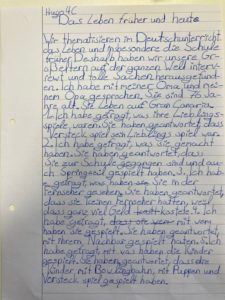 Hugo 4C
Das Leben früher und heute
Wir thematisieren im Deutschunterricht
das Leben und insbesondere die Schule
früher. Deshalb haben wir unsere Gr-
oßeltern auf der ganzen Welt interv-
iewt und tolle Sachen herausgefund-
en. Ich habe mit meiner Oma und mei-
nem Opa gesprochen. Sie sind 70 Ja-
hre alt. Sie leben auf Gran Canaria.
1. Ich habe gefragt, was ihre Lieblings-
spiele waren. Sie haben geantwortet, dass
Versteck spiel sein Lieblings spiel war.
2. Ich habe gefragt, was sie gemacht
haben. Sie haben geantwortet, dass
sie zur Schule gegangen sind und au-
ch Springseil gespielt haben. 3. Ich hab-
e gefragt, was haben Sie in der
Fernseher gesehen. Sie haben geantwortet,
dass sie keinen Fernseher hatten, weil
dass ganz viel Geld kostete. 4. Ich
habe gefragt, mit wem
haben sie gespielt. Sie haben geantwortet,
mit ihrem Nachbar gespielt haben. 5. Ich
habe gefragt, mit was haben die Kinder
gespielt. Sie haben geantwortet, dass die
Kinder mit Bowlingbahn, mit Puppen und
Versteck spiel gespielt haben.